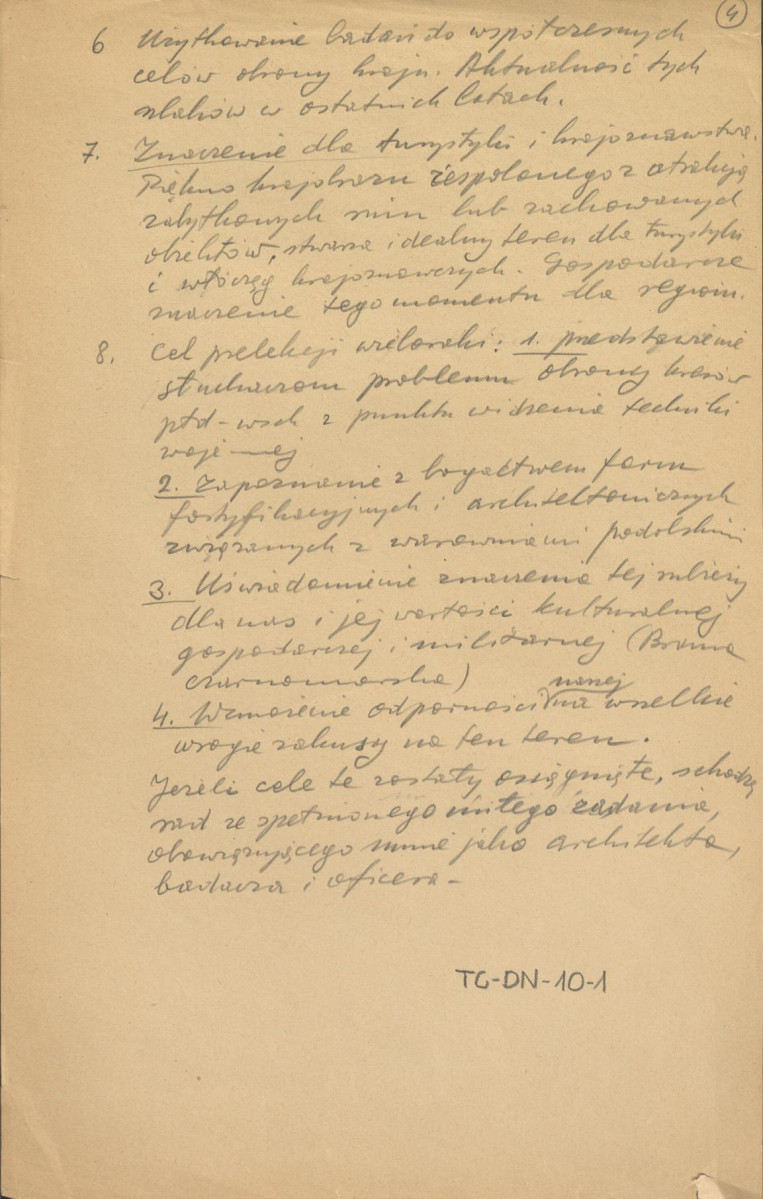 4
6 Użytkowanie badań do współczesnych
celów obrony kraju. Aktualność tych
szlaków w ostatnich latach.
7. Znaczenie dla turystyki i krajoznawstwa.
Piękno krajobrazu zespolonego z atrakcją
zabytkowych ruin lub zachowanych
obiektów, stwarza idealny teren dla turystyki
i włóczęg krajoznawczych. Gospodarcze
znaczenie tego momentu dla regionu.
8. Cel prelekcji wieloraki: 1. przedstawienie
słuchaczom problemu obrony kresów
płd-wsch z punktu widzenia techniki
wojennej
2. Zapoznanie z bogactwem form
fortyfikacyjnych i architektonicznych
związanych z warowniami podolskimi
3. Uświadomienie znaczenia tej rubieży
dla nas i jej wartości kulturalnej
gospodarczej i militarnej (Brama
czarnomorska)
4. Wzmożenie odporności naszej na wszelkie
wrogie zakusy na ten teren.
Jeżeli cele te zostały osiągnięte, schodzę
rad ze spełnionego miłego zadania,
obowiązującego mnie jako architekta,
badacza i oficera –
TG-DN-10-1